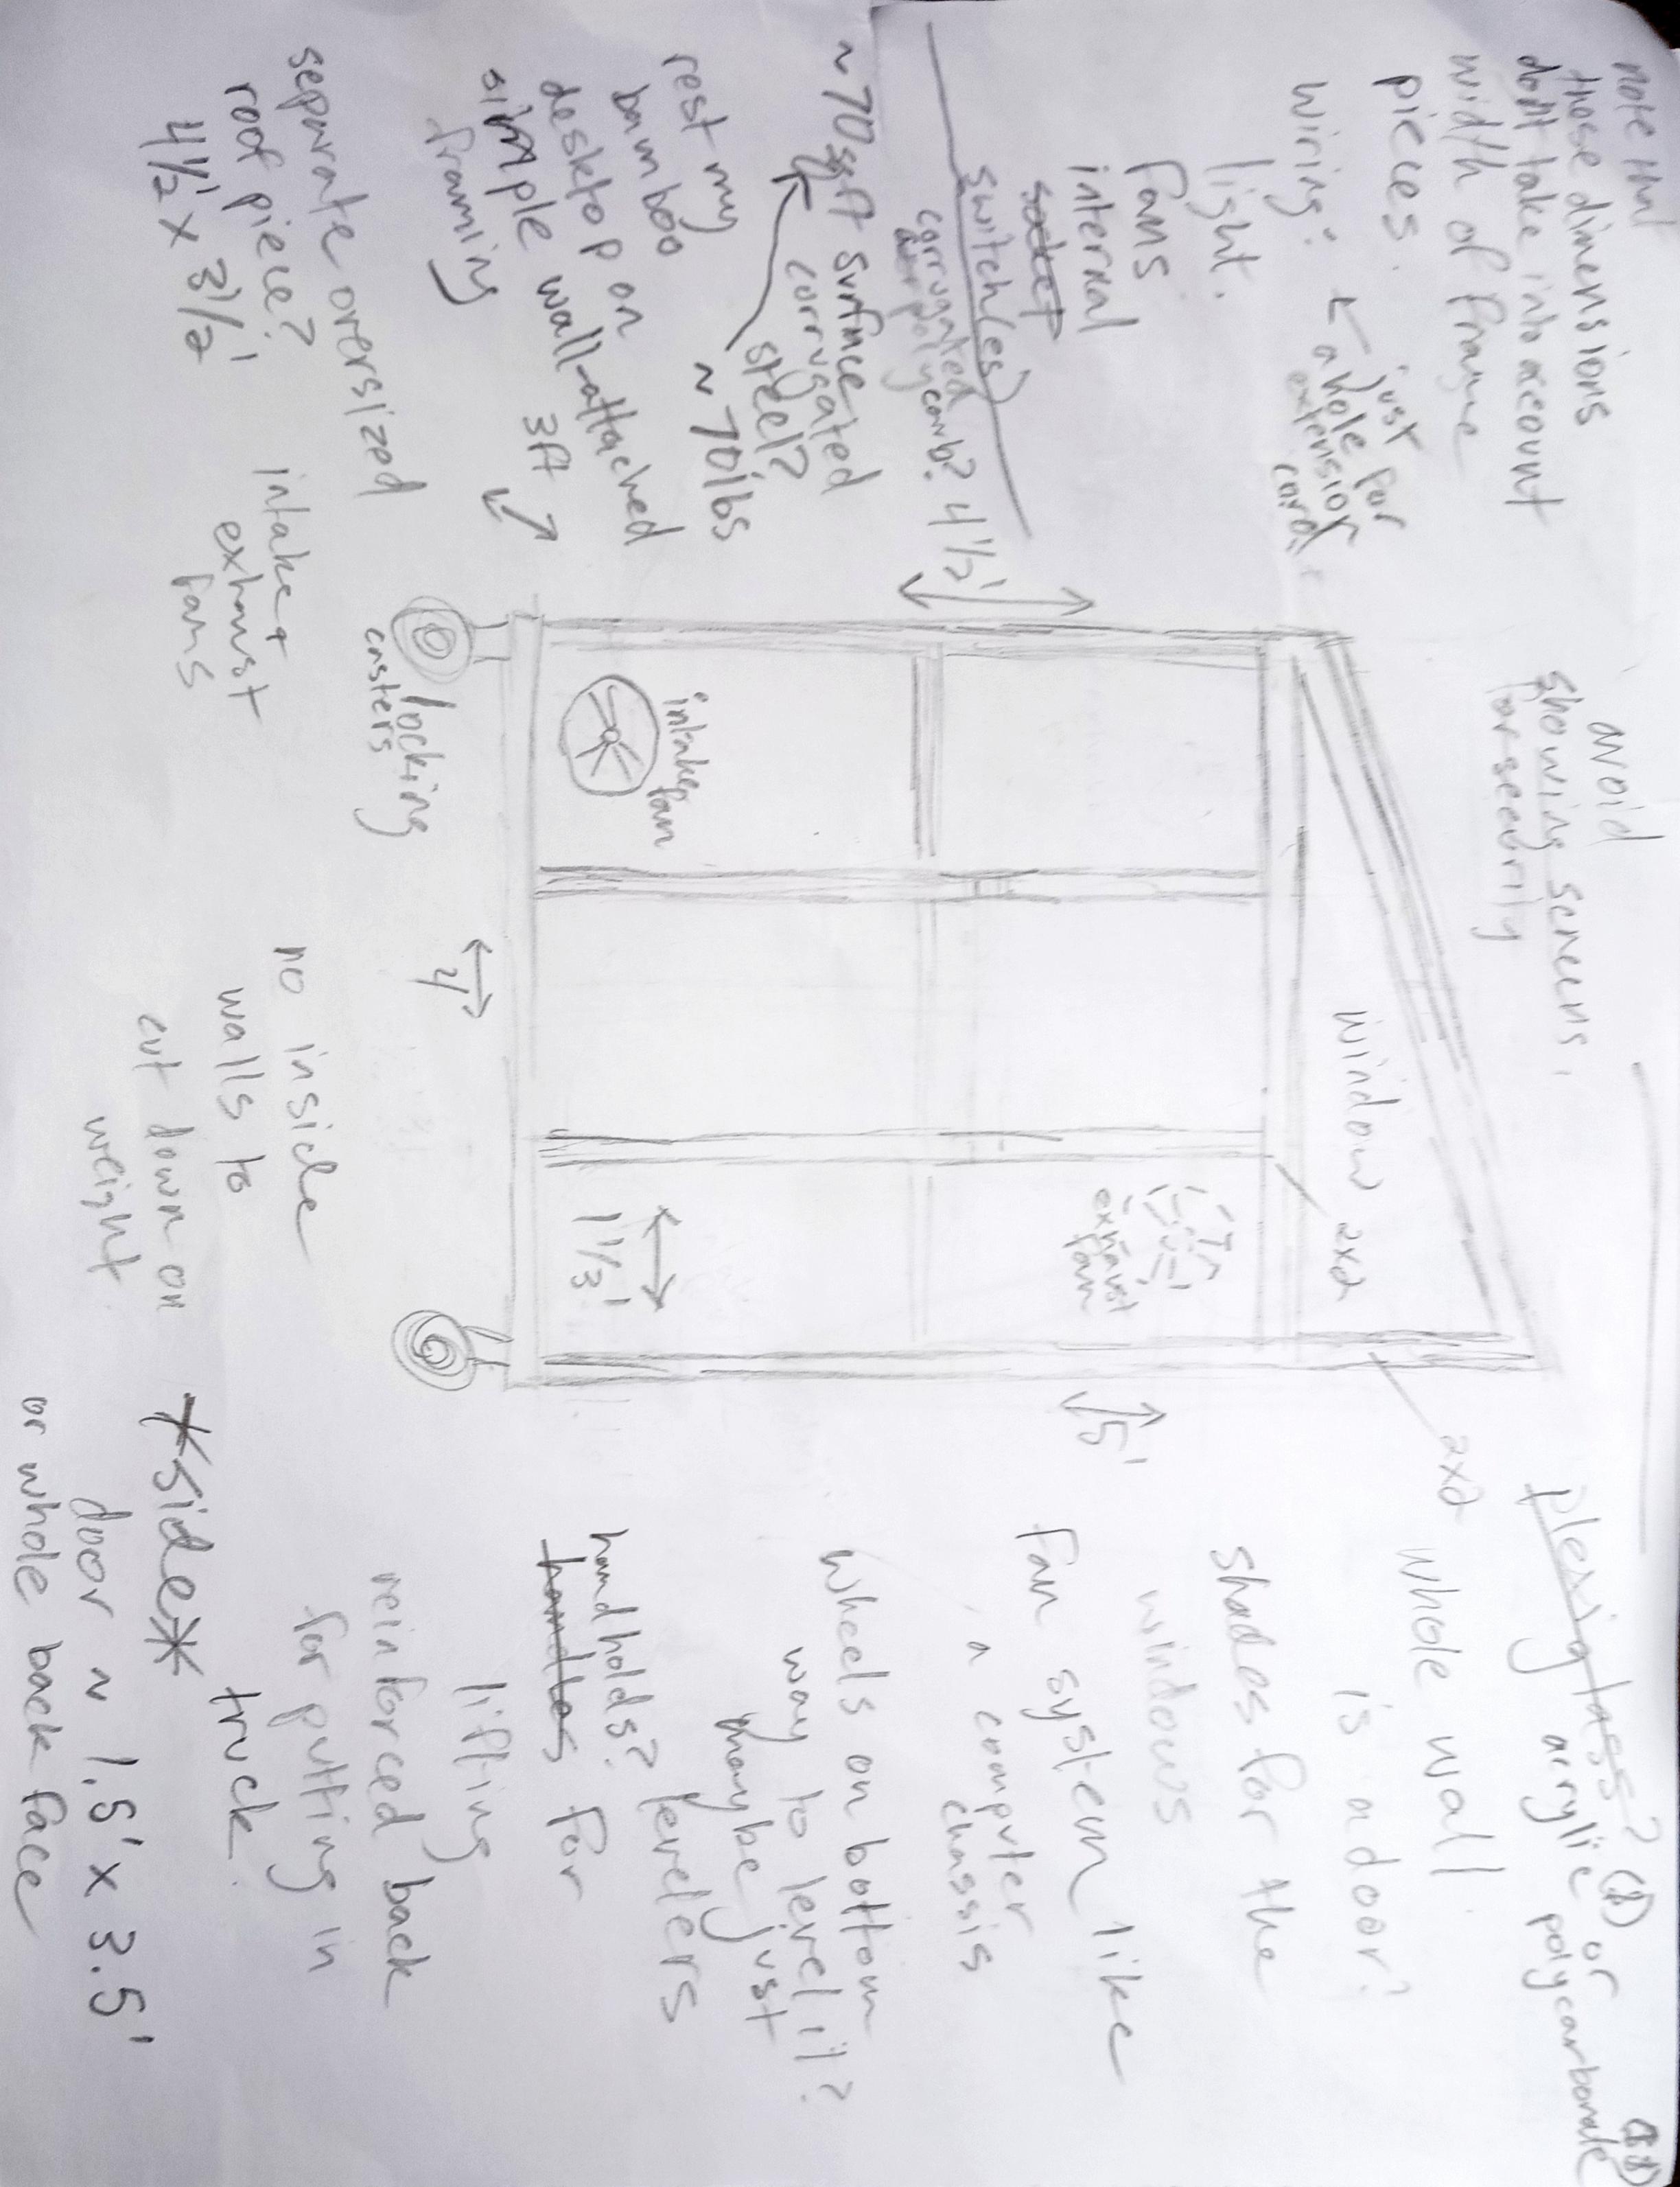 note that
those dimensions
don't take into account
width of frame
pieces.
wiring:
← just
a hole for
extension
cord.
light.
fans
internal
socket
switch(es)
corrugated
polycarb?
~70 sqft surface
corrugated
steel?
~70lbs
rest my
bamboo
desktop on
simple wall-attached
framing
separate oversized
roof piece?
4½' x 3½'
avoid
showing screens
for security
4½'
3ft
intake
fan
locking
casters
intake +
exhaust
fans
window
2x2
exhaust
fan
1⅓'
4'
no inside
walls to
cut down on
weight
5'
2x2
plexiglass? ($)
acrylic or
polycarbonate
($$)
whole wall
is a door?
shades for the
windows
fan system like
a computer
chassis
wheels on bottom
way to level it?
maybe just
levelers
handholds?
handles for
lifting
reinforced back
for putting in
truck.
*side*
door ~ 1.5' x 3.5'
or whole back face